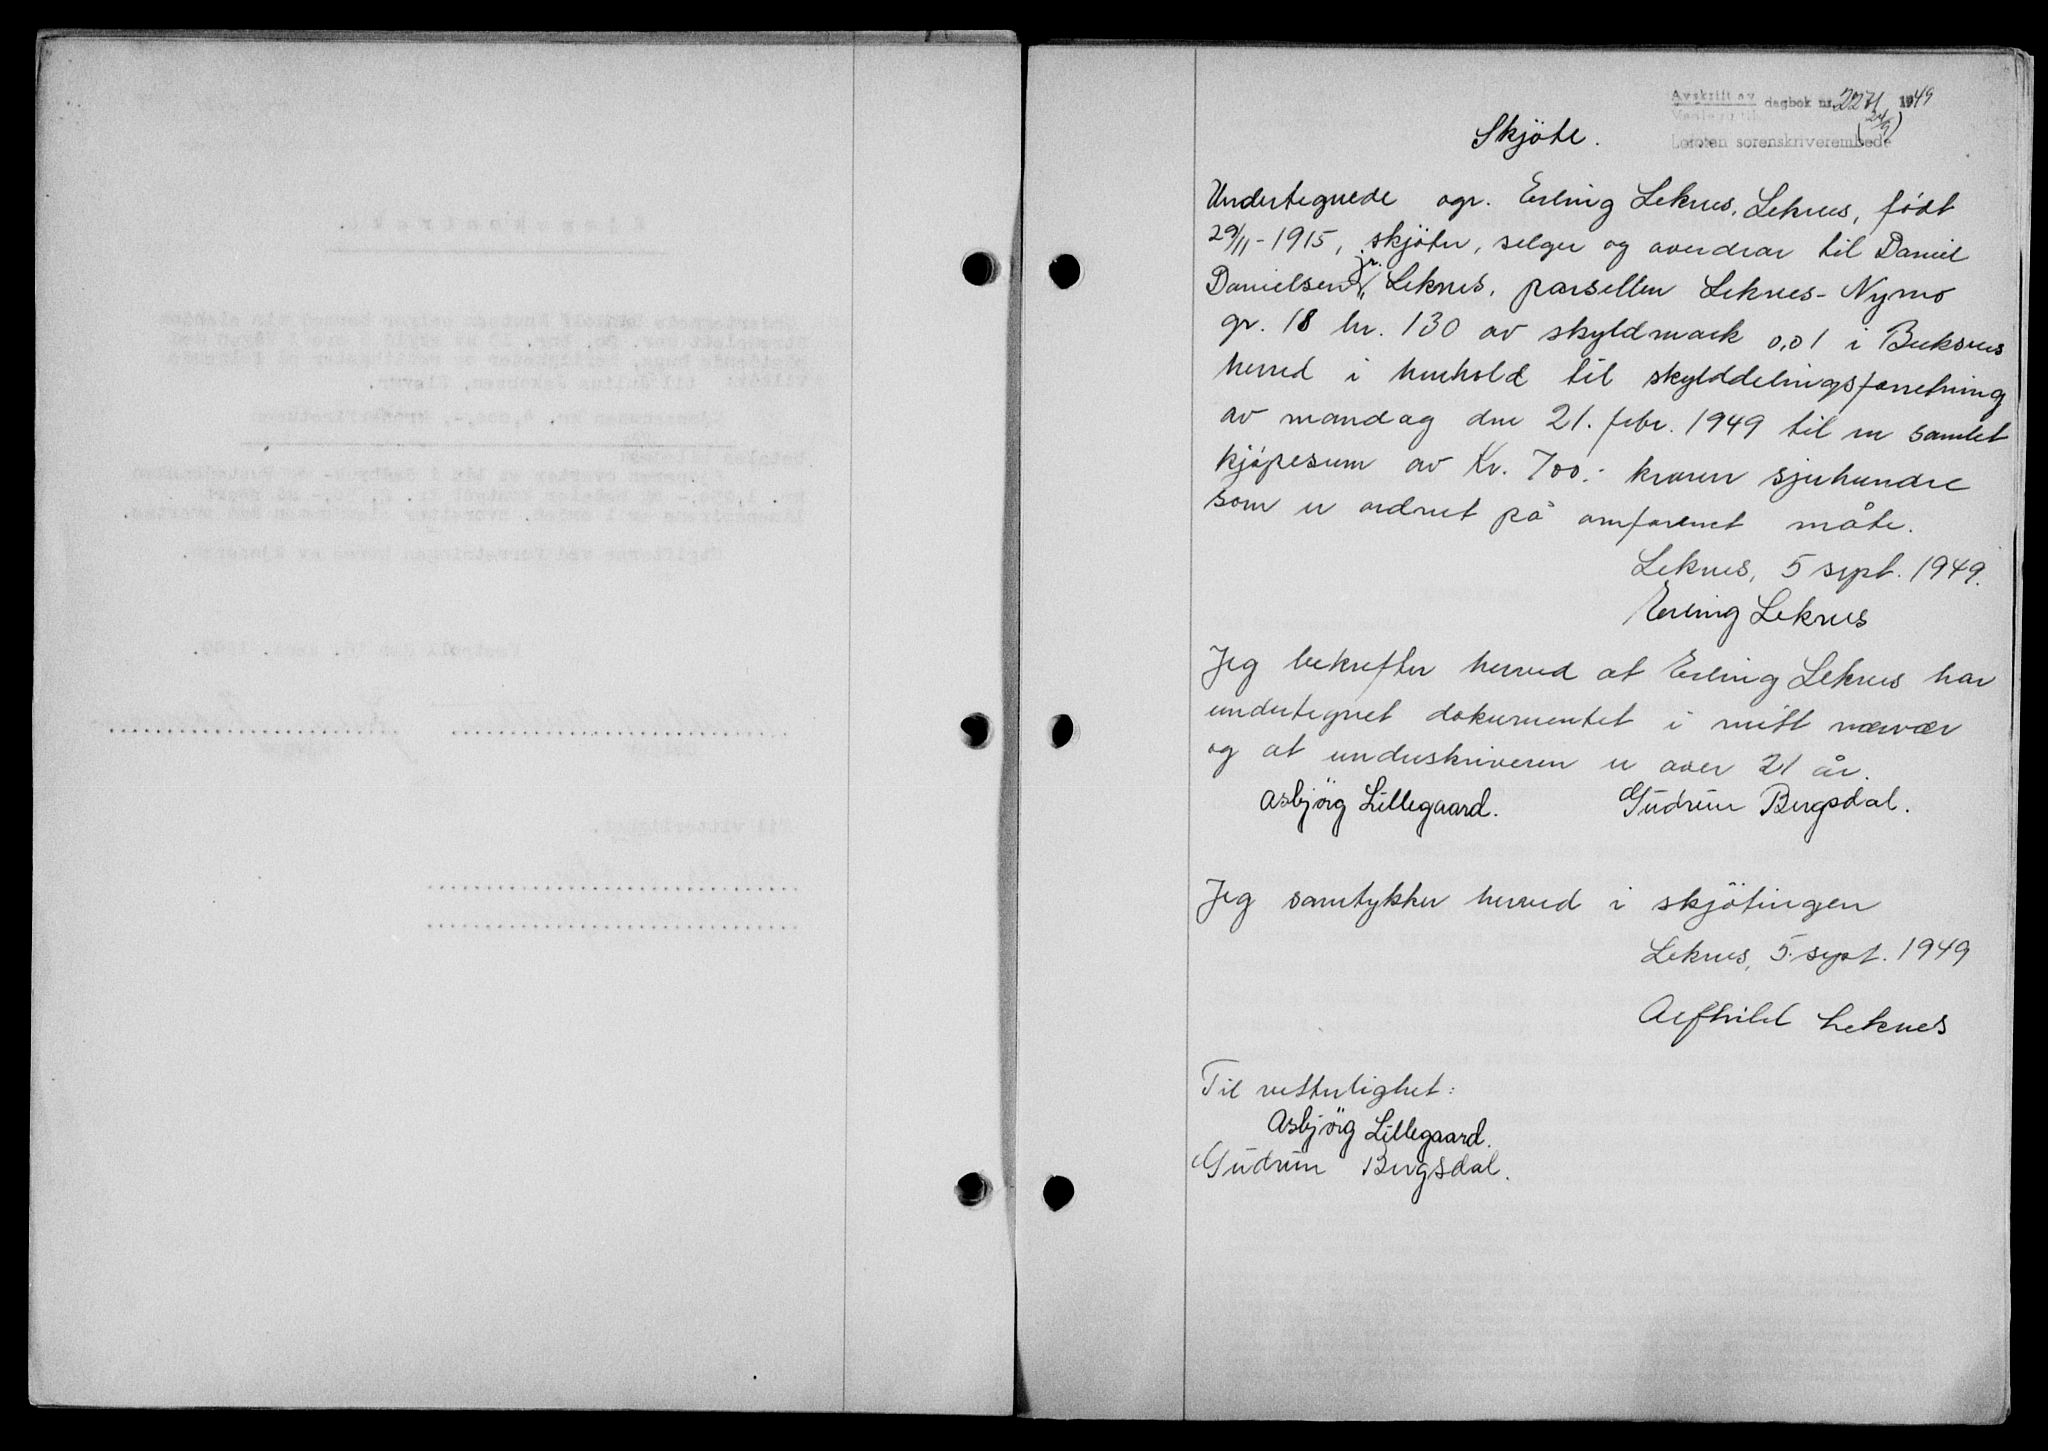 Avskrift av dagbok nr. 2271 1949
(24/9)
Lofoten sorenskriverembede
Skjöte.
Undertegnede ogr. Erling Leknes, Leknes, født
29/11-1915, skjöter, selger og overdrar til Daniel
Danielsen jr. Leknes, parsellen Leknes-Nymo
gr. 18 br. 130 av skyldmark 0,01 i Buksnes
herred i henhold til skylddelingsforretning
av mandag den 21. febr. 1949 til en samlet
kjöpesum av Kr. 700.- kroner sjuhundre
som er ordnet på omforenet måte.
Leknes, 5 sept. 1949.
Erling Leknes
Jeg bekrefter herved at Erling Leknes har
undertegnet dokumentet i mitt nærvær
og at underskriveren er over 21 år.
Asbjörg Lillegaard. Gudrun Bergsdal.
Jeg samtykker herved i skjötingen
Leknes, 5. sept. 1949
Alfhild Leknes
Til vetterlighet:
Asbjörg Lillegaard.
Gudrun Bergsdal.